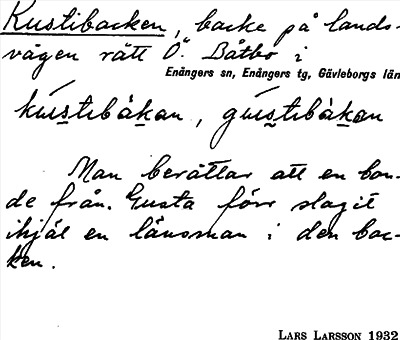 Kustibacken, backe på lands-
vägen rätt Ö. Båtbo i
Enångers sn, Enångers tg, Gävleborgs län
kústibàkan, gústibàkan
Man berättar att en bon-
de från Gusta förr slagit
ihjäl en länsman i den bac-
ken.
LARS LARSSON 1932